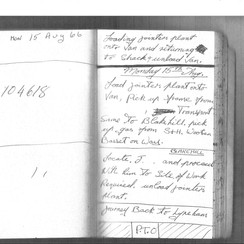 MON 15 Aug 66
104618
11
Loading jointer plant
into Van and returning
to Shack & unload Van.
Monday 15th Aug.
Load jointer plant into
Van, Pick up from
Transport
Same to Blakehill, pick
up gas from Sth Western
Basset on Wood.
Locate J... and proceed
with him to Site of Work
Required, unload jointer
plant.
Journey Back to Lyneham
P.T.O